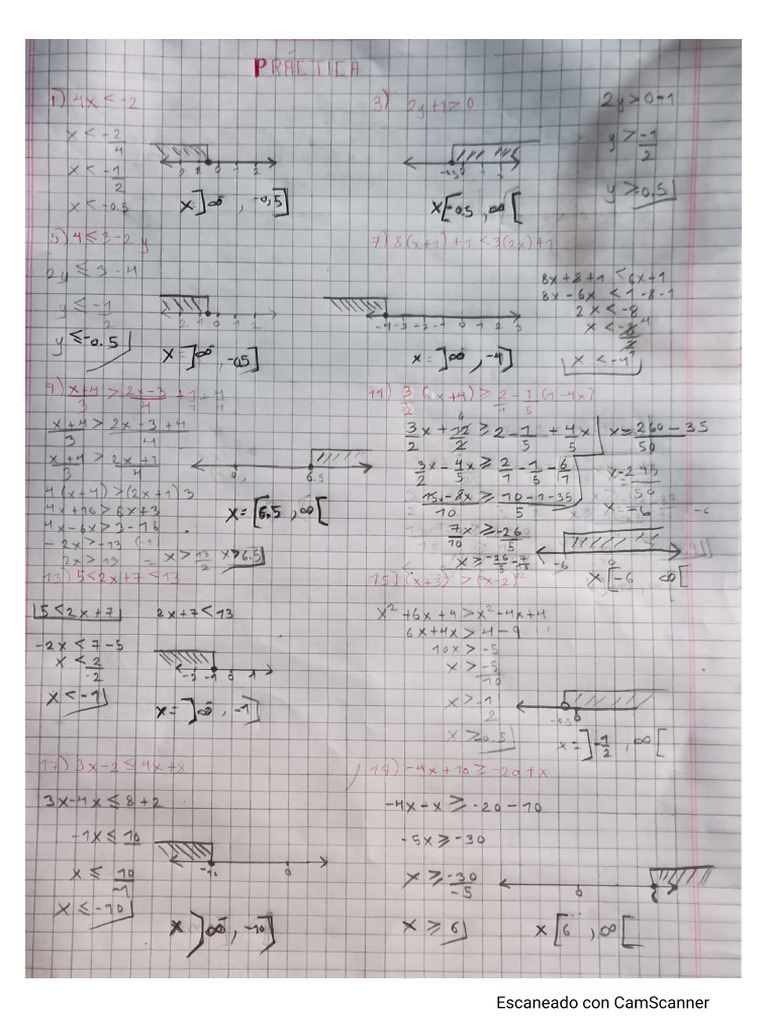 PRÁCTICA
1) 4x < -2
x < -2/4
x < -1/2
x < -0.5
2 1 0 1 2
x ]∞̄ , -0,5]
3) 2y+1≥0
2y > 0-1
y > -1/2
y >-0,5
-0.5
x[-0.5 , ∞[
5) 4 ≤ 3-2 y
2y ≤ 3-4
y ≤ -1/2
y ≤ -0.5
2 1 0 1 2
x = ]∞̄ , -0.5]
7) 8(x+1)+1 < 3(2x)+1
8x+8+1 < 6x+1
8x-6x < 1-8-1
2x < -8
x < -8/2 4
x < -4
-4 -3 -2 -1 0 1 2 3
x = ]∞̄ , -4]
9) x+4/3 > 2x-3/4 + 1/1
x+4/3 > 2x-3+4/4
x+4/3 > 2x+1/4
4(x+4) > (2x+1) 3
4x+16 > 6x+3
4x-6x > 3-16
-2x > -13 (-1)
2x > 13 = x > 13/2 x > 6.5
0 6.5
x = [6.5 , ∞[
11) 3/2 (x+4) ≥ 2 - 1/5 (1-4x)
3/2 x + 12/2 6 ≥ 2 - 1/5 + 4/5 x
3/2 x - 4/5 x ≥ 2/1 - 1/5 - 6/1
15x-8x/10 ≥ 10-1-35/5
7/10 x ≥ -26/5
x ≥ -26/5 - 7/10
x = -260-35/50
x = -6
-6 0
x [-6 ∞[
13) 5<2x+7<13
5<2x+7 2x+7<13
-2x < 7-5
x < 2/-2
x < -1
-2 -1 0 1
x = ]∞̄ , -1]
15) (x+3)² > (x-2)²
x²+6x+9 > x²-4x+4
6x+4x > 4-9
10x > -5
x > -5/10
x > -1/2
x >-0.5
-0.5 0
x = ]-1/2 , ∞[
17) 3x-2 ≤ 4x+8
3x-4x ≤ 8+2
-1x ≤ 10
x ≤ 10/-1
x ≤ -10
-10 0
x ]∞̄ , -10]
19) -4x+10 ≥ -20+x
-4x-x ≥ -20-10
-5x ≥ -30
x ≥ -30/-5
x ≥ 6
0 6
x [6 , ∞[
Escaneado con CamScanner